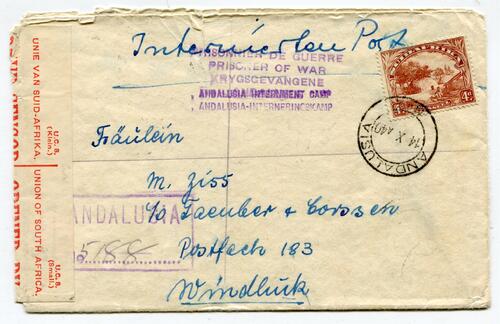 Interniertenpost
PRISONNIER DE GUERRE
PRISONER OF WAR
KRYGSGEVANGENE
ANDALUSIA INTERNMENT CAMP
ANDALUSIA-INTERNERINGSKAMP
4d
ANDALUSIA
14 X 40
Fräulein
M. Ziss
c/o Taeuber & Corssen
Postfach 183
Windhuk
ANDALUSIA
5188
UNIE VAN SUID-AFRIKA.
U.C.8.
(Klein.)
UNION OF SOUTH AFRICA.
U.C.8.
(Small.)
CENSOR
OPENED BY